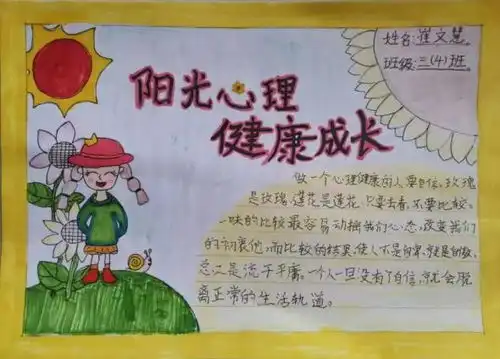 姓名:崔文慧。
班级:三(4)班。
阳光心理
健康成长
做一个心理健康的人,要自信,玫瑰
是玫瑰,莲花是莲花,只要去看,不要比较。
一味的比较最容易动摇我们心态,改变我们
的初衷他,而比较的结果,使人不是自卑,就是自傲,
总之是流于平庸。一个人一旦没有了自信,就会脱
离正常的生活轨道。